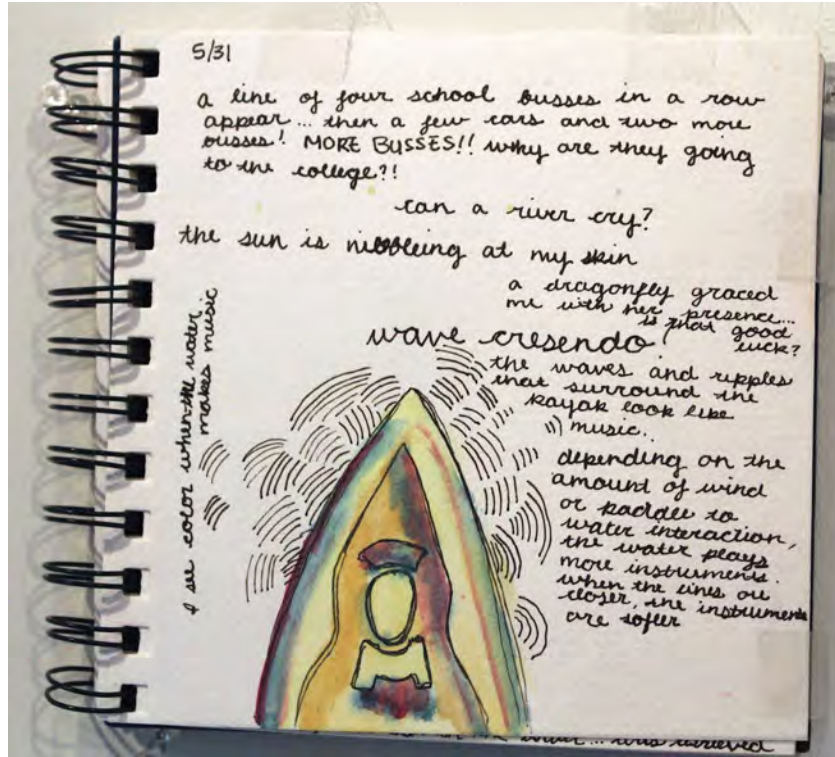 5/31
a line of four school busses in a row
appear... then a few cars and two more
busses! MORE BUSSES!! why are they going
to the college?!
can a river cry?
the sun is nibbleing at my skin
a dragonfly graced
me with her presence...
is that good
luck?
wave cresendo
the waves and ripples
that surround the
kayak look like
music..
depending on the
amount of wind
or paddle to
water interaction,
the water plays
more instruments.
when the lines are
closer, the instruments
are softer
I see color when the water
makes music